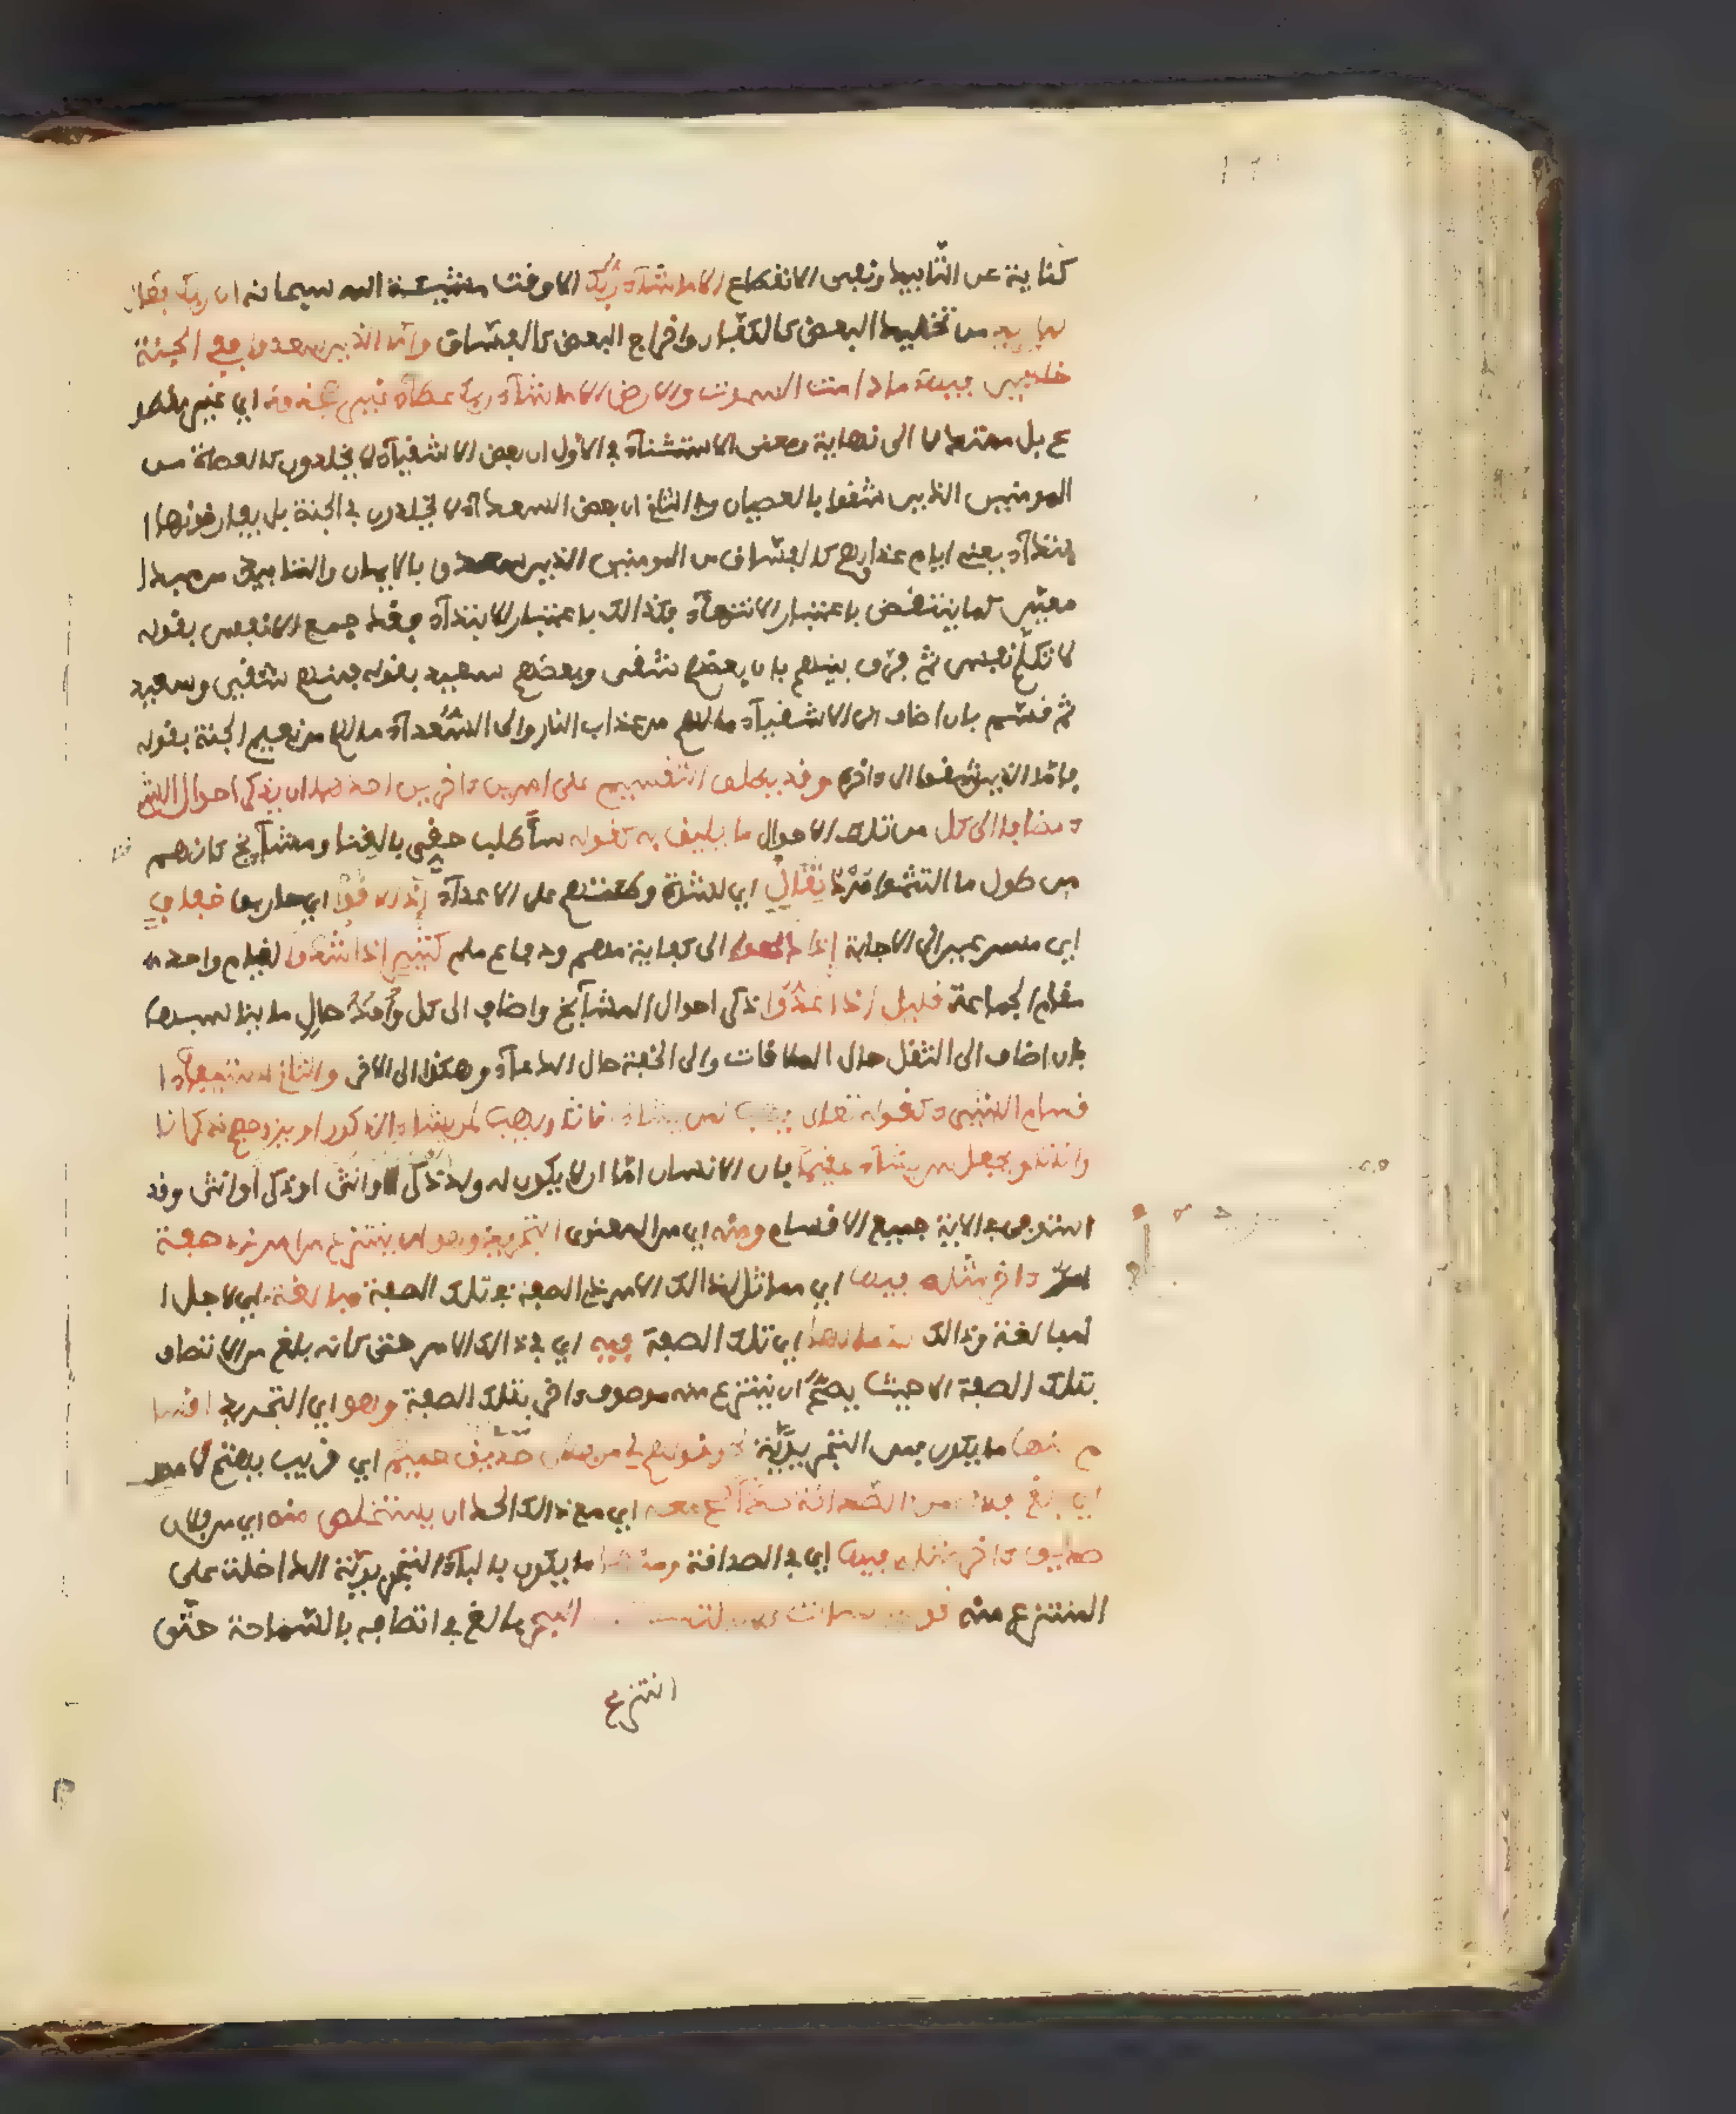 كناية عن التأبيد ونفى الانقطاع الا ما شآء ربك الا وقت مشيئة الله سبحانه ان ربك فعال
لما يريد من تخليد البعض كالكفار واخراج البعض كالفساق واما الذين سعدوا ففي الجنة
خلدين فيها ما دامت السموت والارض الا ما شآء ربك عطآء غير مجذوذ اي غير مقطو
ع بل ممتد لا الى نهاية ومعنى الاستثنآء في الاول ان بعض الاشقيآء لا يخلدون كالعصاة من
المومنين الذين شقوا بالعصيان وفي الثاني ان بعض السعدآء لا يخلدون في الجنة بل يفارقونها ا
بتدآء يعني ايام عذابهم كالفساق من المومنين الذين سعدوا بالايمان والتابيد من مبدا
معين كما ينتقض باعتبار الانتهآء فكذالك باعتبار الابتدآء فقد جمع الانفس بقوله
لا تكلم نفس ثم فرق بينهم بان بعضهم شقى وبعضهم سعيد بقوله فمنهم شقي وسعيد
ثم قسم بان اضاف الى الاشقيآء ما لهم من عذاب النار والى السعدآء ما لهم من نعيم الجنة بقوله
فاما الذين شقوا الى داخره وقد يطلق التقسيم على امرين داخرين احدهما ان يذكر احوال الشى
ء مضافا الى كل من تلك الاحوال ما يليق به كقوله سأطلب حقي بالقنا ومشآيخ كانهم
من طول ما التثموا مرد ثقال اي لشدة وطئتهم على الاعدآء اذا لاقوا اي حاربوا خفاف
اي مسرعين الى الاجابة اذا دعوا الى كفاية مهم ودفاع ملم كثير اذا شدوا لقيام واحد
مقام الجماعة قليل اذا عدوا ذكر احوال المشآيخ واضاف الى كل واحدة حال ما يناسبها
بان اضاف الى الثقل حال الملاقات والى الخفة حال الدعآء وهكذا الى الاخر والثاني استيفآء ا
قسام الشىء كقوله تعالى يهب لمن يشآء اناثا ويهب لمن يشآء الذكور او يزوجهم ذكرانا
واناثا ويجعل من يشآء عقيما فان الانسان اما ان لا يكون له ولد او ذكر وانثى او ذكر او انثى وقد
استوفى في الاية جميع الاقسام ومنه اي من المعنوى التجريد وهو ان ينتزع من امر ذي صفة
امر داخر مثله فيها اي مماثل لذالك الامر ذي الصفة في تلك الصفة مبالغة اي لاجل ا
لمبالغة وذالك لكمالها اي تلك الصفة فيه اي في ذالك الامر حتى كانه بلغ من الاتصاف
بتلك الصفة الا حيث يصح ان ينتزع منه موصوف داخر بتلك الصفة وهو اي التجريد اقسا
م منها ما يكون بمن التجريدية نحو قولهم لي من فلان صديق حميم اي قريب يهتم لامره
اي بلغ فلان من الصداقة حدا صح معه اي مع ذالك الحد ان يستخلص منه اي من فلان
صديق داخر مثله فيها اي في الصداقة ومنها ما يكون بالبآء التجريدية الداخلة على
المنتزع منه نحو قولهم لئن سالت فلانا لتسئلن به البحر بالغ في اتصافه بالسماحة حتى
انتزع